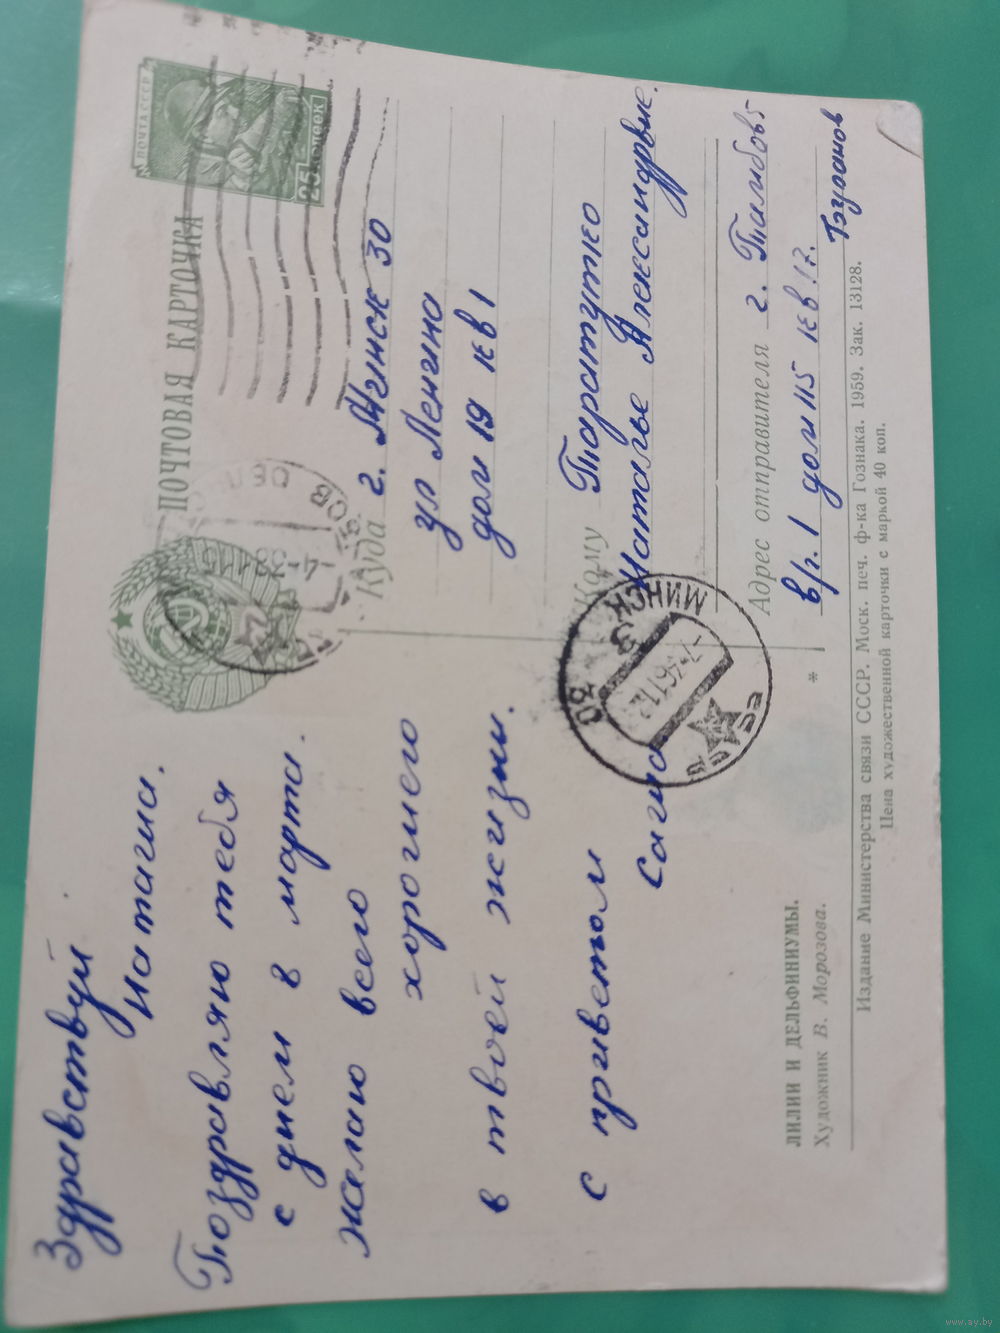 Здравствуй
Наташа.
Поздравляю тебя
с днем 8 марта.
желаю всего
хорошего
в твоей жизни.
с приветом
Саша
ЛИЛИИ И ДЕЛЬФИНИУМЫ.
Художник В. Морозова.
ПОЧТА СССР
25 копеек
ПОЧТОВАЯ КАРТОЧКА
Куда г. Минск 30
ул Ленина
дом 19 кв 1
Кому Таратутко
Наталье Александровне.
МИНСК 3
Адрес отправителя г. Тамбов 5
в/г. 1 дом 115 кв 17.
*
Издание Министерства связи СССР. Моск. печ. ф-ка Гознака. 1959. Зак. 13128.
Цена художественной карточки с маркой 40 коп.
www.ay.by